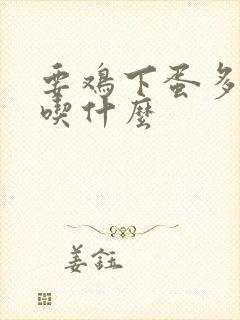 要鸡下蛋多
喫什麼
姜鈺